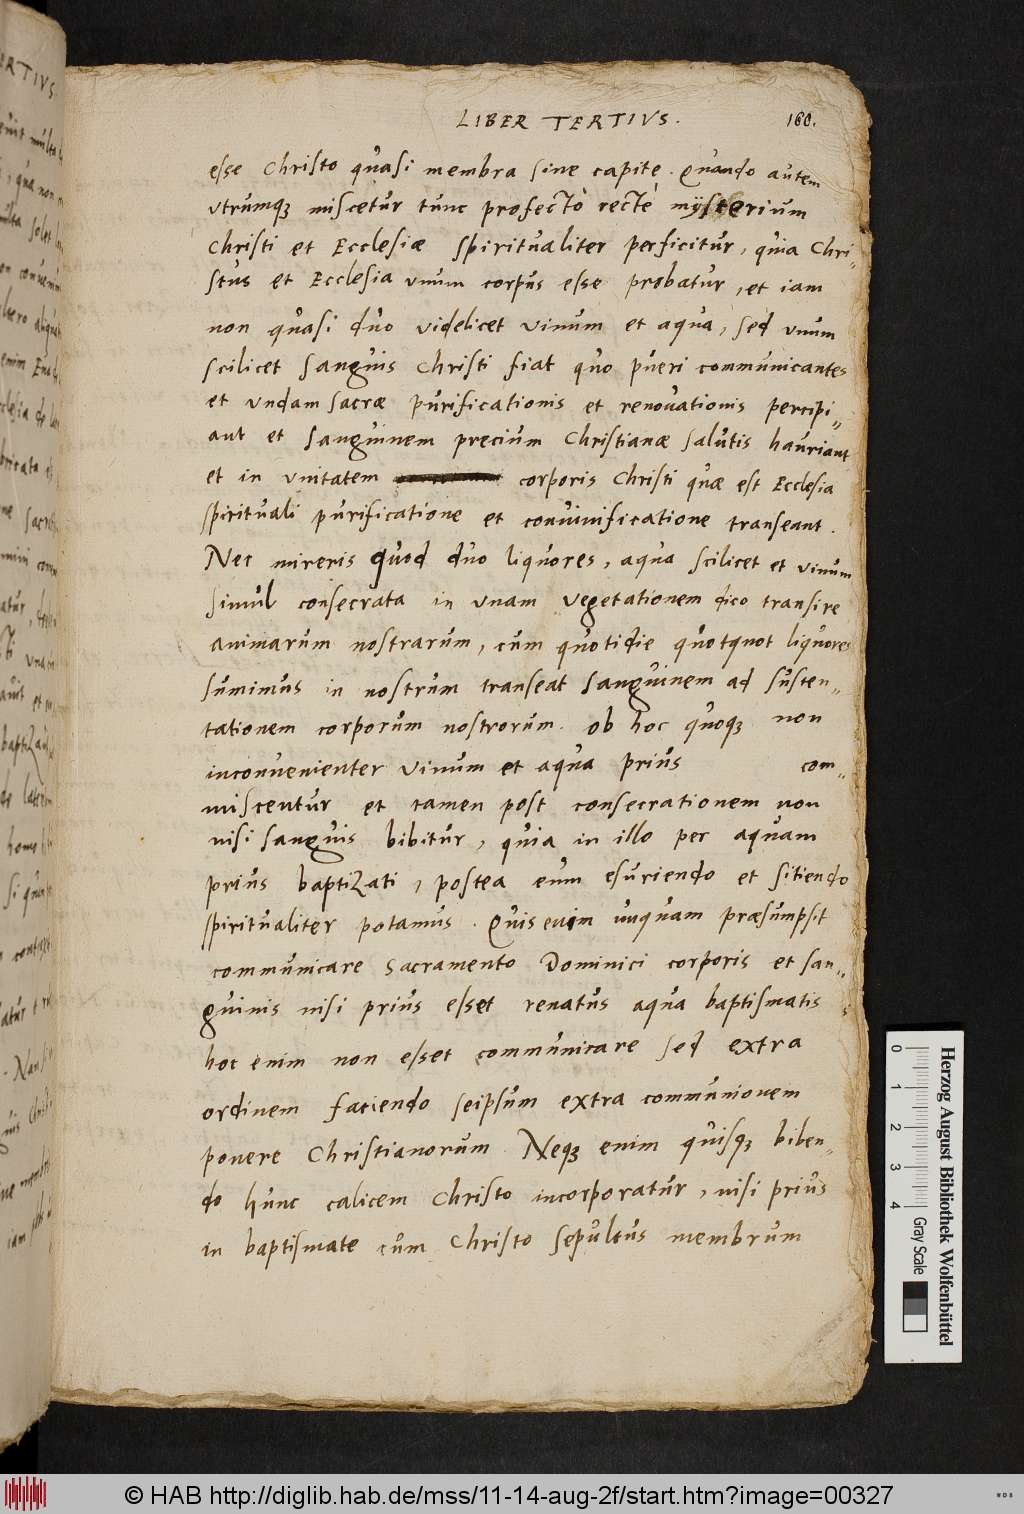 LIBER TERTIVS. 160.
esse Christo quasi membra sine capite. Quando autem
vtrumqꝫ miscetur tunc profectò rectè mÿsterium
Christi et Ecclesiæ spiritualiter perficitur, quia Chri„
stus et Ecclesia vnum corpus esse probatur, et iam
non quasi duo videlicet vinum et aqua, sed vnum
scilicet sanguis Christi fiat quo pueri communicantes
et vndam sacræ purificationis et renouationis percipi„
ant et sanguinem precium Christianæ salutis hauriant
et in vnitatem corporis Christi quæ est Ecclesia
spirituali purificatione et conuiuificatione transeant.
Nec mireris quod duo liquores, aqua scilicet et vinum
simul consecrata in vnam vegetationem dico transire
animarum nostrarum, cum quotidie quotquot liquores
sumimus in nostrum transeat sanguinem ad susten„
tationem corporum nostrorum. ob hoc quoqꝫ non
inconuenienter vinum et aqua prius com„
miscentur et tamen post consecrationem non
nisi sanguis bibitur, quia in illo per aquam
prius baptizati, postea eum esuriendo et sitiendo
spiritualiter potamus. Quis enim vnquam præsumpsit
communicare sacramento Dominici corporis et san„
guinis nisi prius esset renatus aqua baptismatis
hoc enim non esset communicare sed extra
ordinem faciendo seipsum extra communionem
ponere Christianorum. Neqꝫ enim quisqꝫ biben„
do hunc calicem Christo incorporatur, nisi prius
in baptismate cum Christo sepultus membrum
Herzog August Bibliothek Wolfenbüttel
0 1 2 3 4 Gray Scale
© HAB http://diglib.hab.de/mss/11-14-aug-2f/start.htm?image=00327